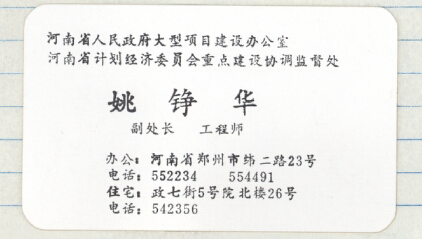 河南省人民政府大型项目建设办公室
河南省计划经济委员会重点建设协调监督处
姚 铮 华
副处长 工程师
办公: 河南省郑州市纬二路23号
电话: 552234 554491
住宅: 政七街5号院北楼26号
电话: 542356